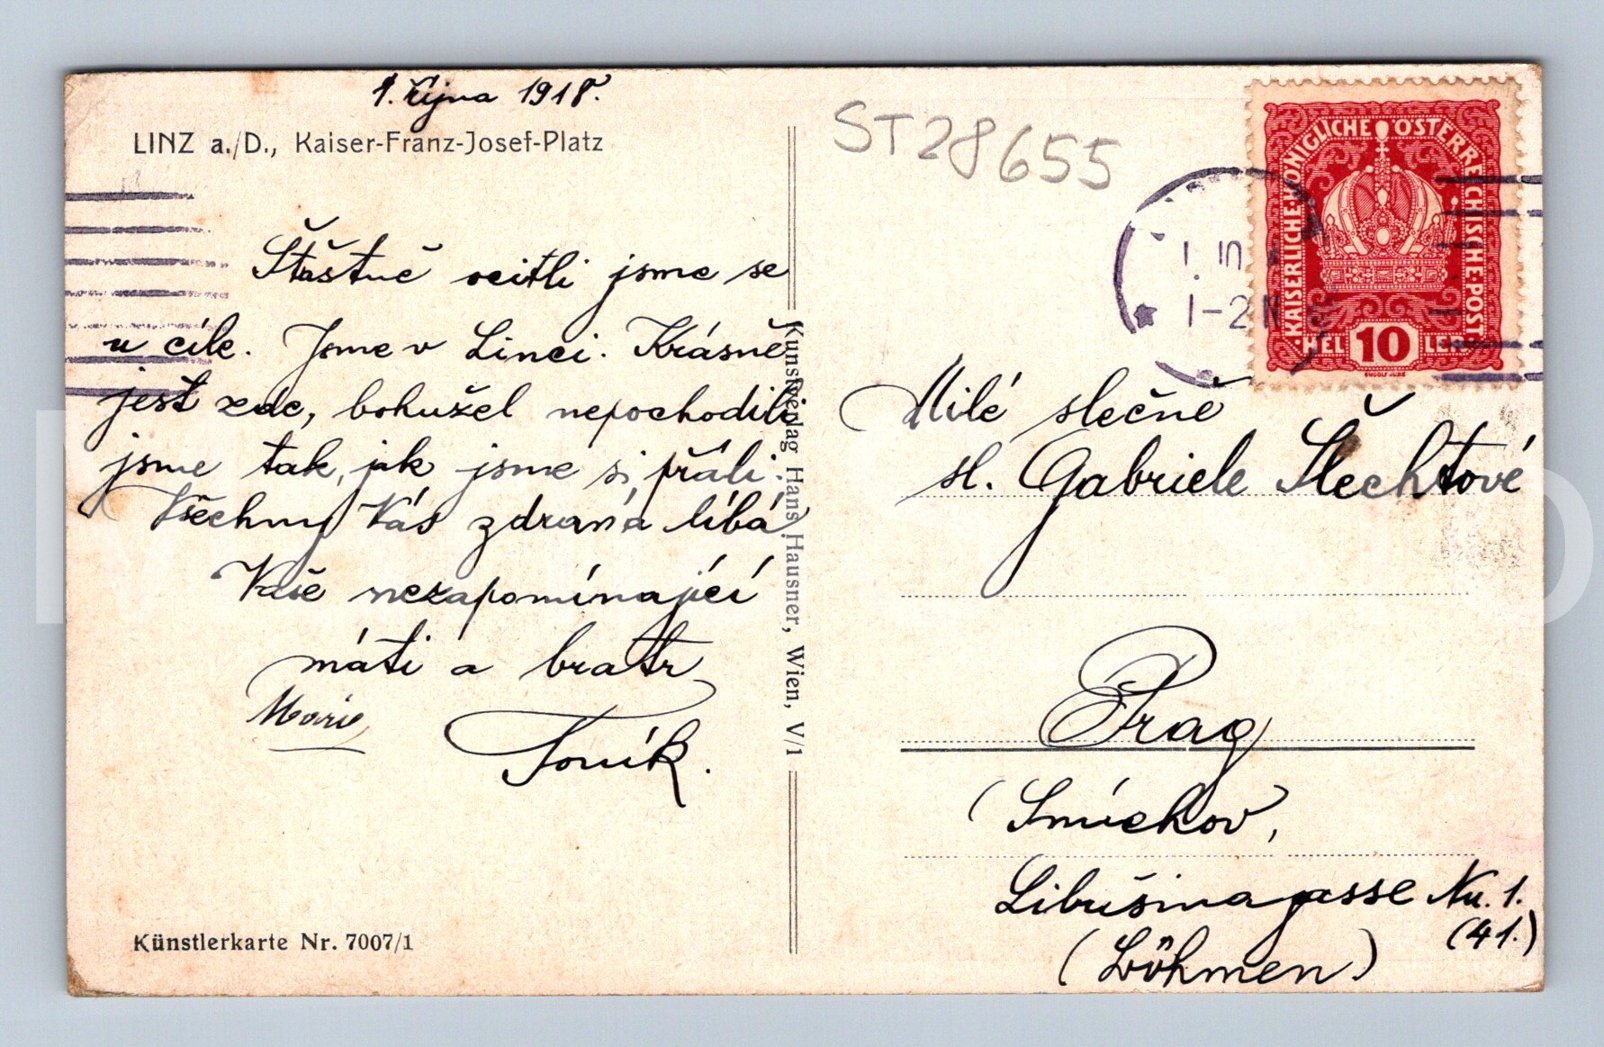 1. října 1918.
LINZ a./D., Kaiser-Franz-Josef-Platz
ST28655
KAISERLICHE·KÖNIGLICHE ÖSTERREICHISCHE·POST
HEL 10 LER
1-2N
Šťastně ocitli jsme se
u cíle. Jsme v Linci. Krásně
jest zde, bohužel nepochodili
jsme tak, jak jsme si přáli.
Všechny Vás zdravá líbá
Vaše nezapomínající
máti a bratr
Marie
Toník.
Künstlerkarte Nr. 7007/1
Kunstverlag Hans Hausner, Wien, V/1
Milé slečně
sl. Gabriele Šlechtové
Prag
(Smíchov,
Libušinagasse Nu. 1.
(41.)
(Böhmen)